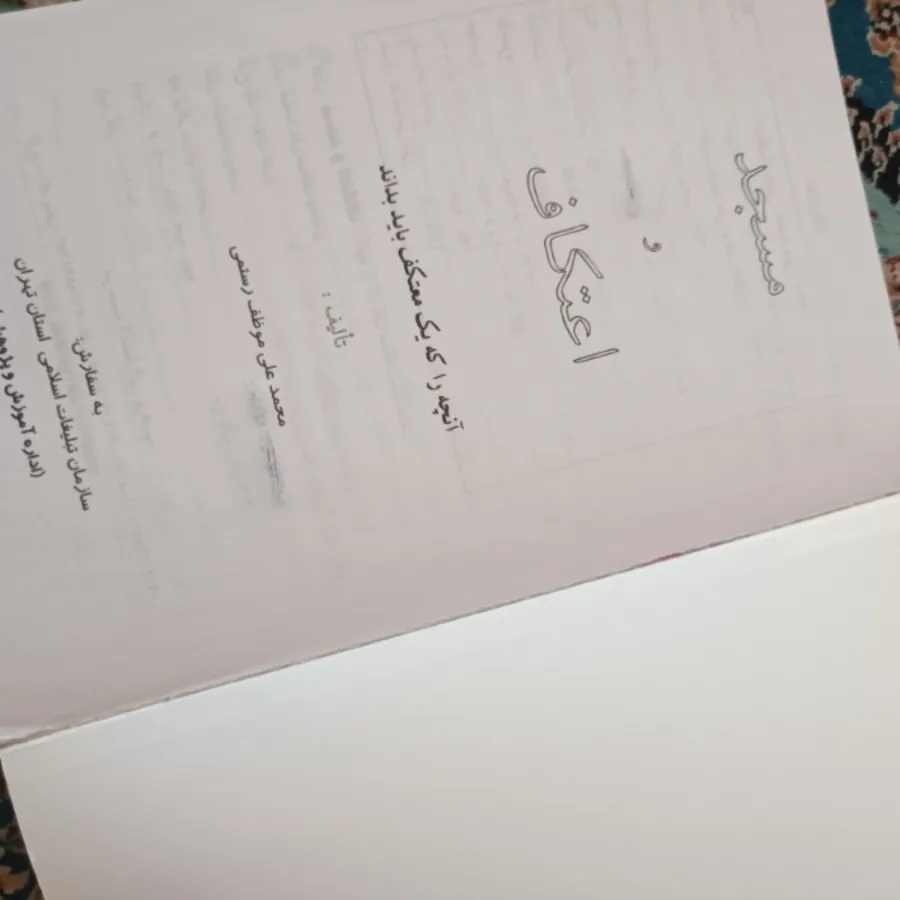 مسجد
و
اعتکاف
آنچه را که یک معتکف باید بداند
تألیف :
محمد علی موظف رستمی
به سفارش:
سازمان تبلیغات اسلامی استان تهران
(اداره آموزش و پژوهش